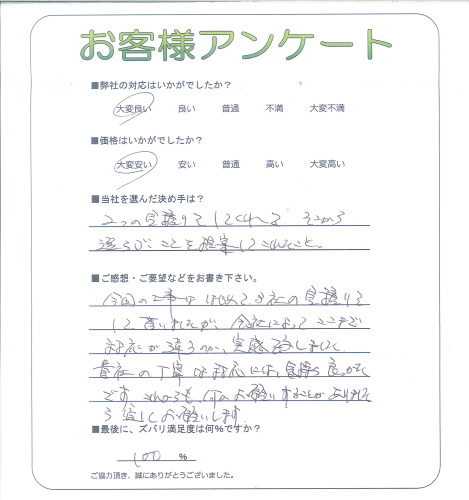 お客様アンケート
■弊社の対応はいかがでしたか?
大変良い 良い 普通 不満 大変不満
■価格はいかがでしたか?
大変安い 安い 普通 高い 大変高い
■当社を選んだ決め手は?
2つの見積りをしてくれる そこから
選らぶことを提案してくれたこと。
■ご感想・ご要望などをお書き下さい。
今回の工事ははじめて3社の見積りを
して貰いましたが、会社によってここまで
対応が違うのか、実感致しまして
貴社の丁寧な対応には、気持ち良かった
です。これからも、何かお願いすることがありましたら
宜しくお願いします
■最後に、ズバリ満足度は何%ですか?
100 %
ご協力頂き、誠にありがとうございました。